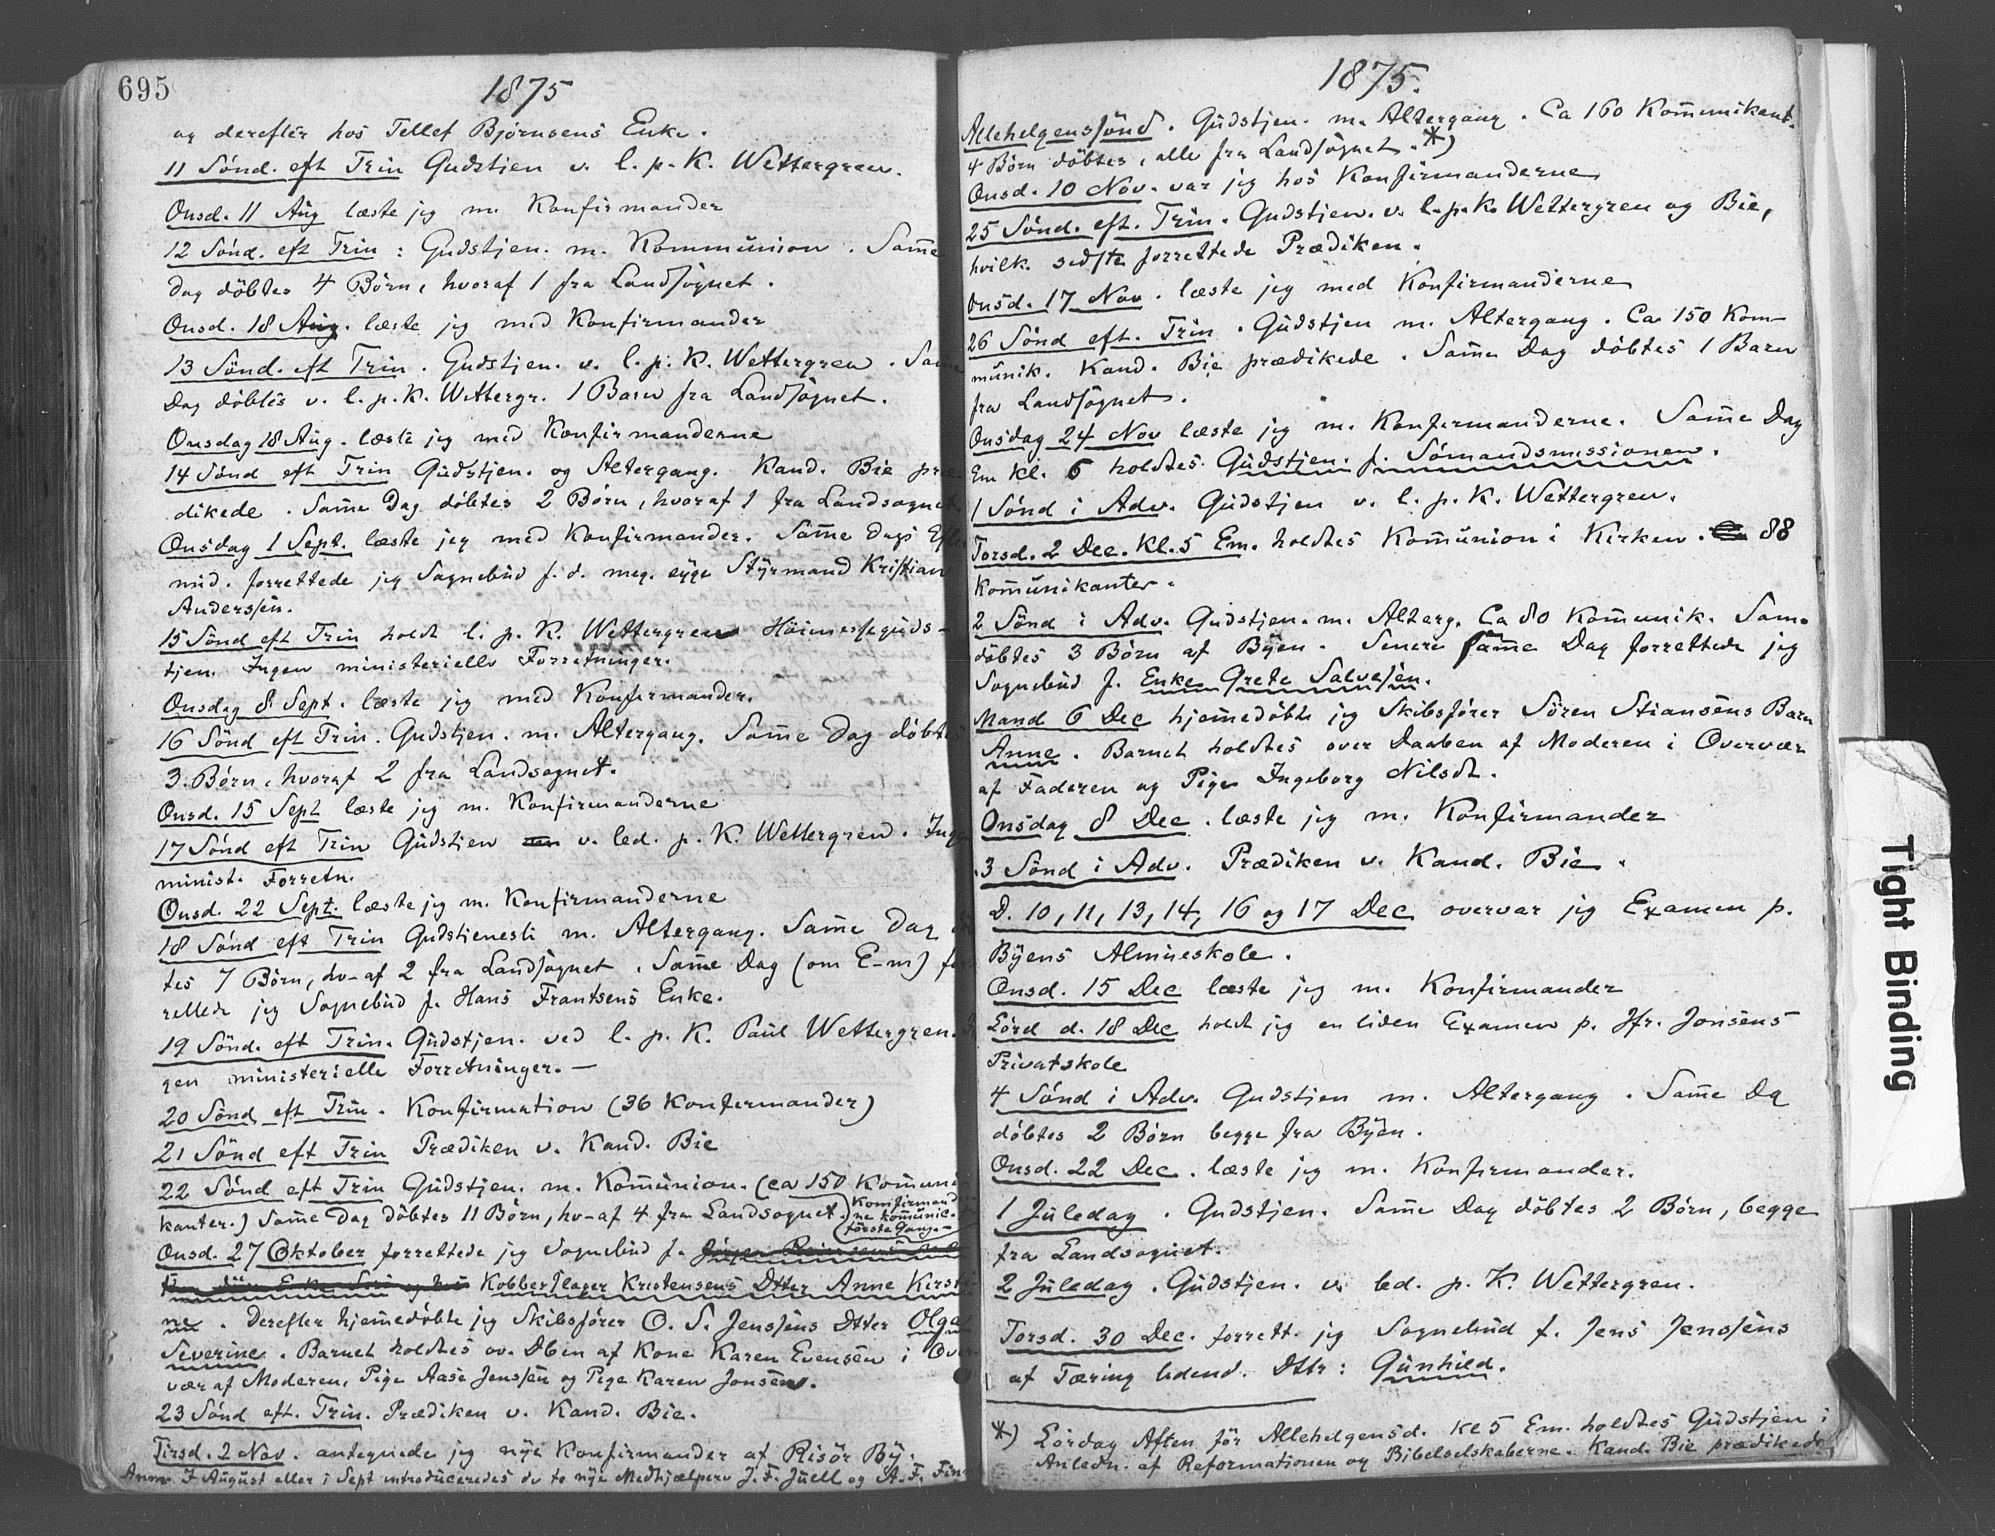 695
1875
og derefter hos Tellef Bjørnsens Enke.
11 Sönd. eft Trin Gudstjen v. l. p. K. Wettergren.
Onsd. 11 Aug læste jeg m. Konfirmander
12 Sönd. eft Trin : Gudstjen. m. Kommunion . Samme
Dag döbtes 4 Börn, hvoraf 1 fra Landsognet .
Onsd. 18 Aug. læste jeg med Konfirmander
13 Sönd. eft Trin . Gudstjen. v. l. p. K. Wettergren .
Dag döbtes v. l. p. K. Wettergr. 1 Barn fra Landsognet.
Onsdag 18 Aug. læste jeg med Konfirmanderne
14 Sönd eft Trin Gudstjen. og Altergang. Kand. Bie præ-
dikede . Samme Dag döbtes 2 Börn, hvoraf 1 fra Landsognet.
Onsdag 1 Sept. læste jeg med Konfirmander. Samme Dags Efter
mid. forrettede jeg Sognebud f. d. meg. syge Styrmand Kristian
Anderssen.
15 Sönd eft Trin holdt l. p. K. Wettergren Höimesseguds-
tjen. Ingen ministerielle Forretninger.
Onsdag 8 Sept. læste jeg med Konfirmander.
16 Sönd eft Trin. Gudstjen. m. Altergang. Samme Dag döbtes
3 Börn, hvoraf 2 fra Landsognet.
Onsd. 15 Sept læste jeg m. Konfirmanderne
17 Sönd eft Trin Gudstjen v. led. p. K. Wettergren. Ingen
minist. Forretn.
Onsd. 22 Sept. læste jeg m. Konfirmanderne
18 Sönd eft Trin Gudstjeneste m. Altergang. Samme Dag
tes 7 Börn, hv-af 2 fra Landsognet . Samme Dag (om E-m)
rettede jeg Sognebud f. Hans Frantsens Enke.
19 Sönd. eft Trin. Gudstjen. ved l. p. K. Paul Wettergren.
gen ministerielle Forretninger. —
20 Sönd eft Trin. Konfirmation (36 Konfirmander)
21 Sönd eft Trin Prædiken v. Kand. Bie
22 Sönd eft Trin Gudstjen. m. Kommunion. (ca 150 Kommuni
kanter.) Samme Dag döbtes 11 Börn, hv-af 4 fra Landsognet. (Konfirmand
ne kommunic.
förste Gang.—
Onsd. 27 Oktober forrettede jeg Sognebud f.
Kobberslager Kristensens Dtter Anne Kirsti
ne . Derefter hjemmedöbte jeg Skibsförer O. S. Jenssens Dtter Olga
Siverine. Barnet holdtes ov. Dben af Kone Karen Evensen i Over-
vær af Moderen, Pige Aase Jenssen og Pige Karen Jonsen.
23 Sönd eft. Trin. Prædiken v. Kand. Bie.
Tirsd. 2 Nov. antegnede jeg nye Konfirmander af Risör By.
Anm. I August eller i Sept introduceredes de to nye Medhjælpere J. F. Juell og A. F. Finn
1875.
Allehelgenssönd. Gudstjen. m. Altergang . Ca 160 Kommunikant.
4 Börn döbtes, alle fra Landsognet .*)
Onsd. 10 Nov. var jeg hos Konfirmanderne
25 Sönd. eft. Trin. Gudstjen. v. l. p. K. Wettergren og Bie,
hvilk. sidste forrettede Prædiken .
Onsd. 17 Nov . læste jeg med Konfirmanderne
26 Sönd eft. Trin . Gudstjen m. Altergang . Ca 150 Kom-
munik. Kand. Bie prædikede . Samme Dag döbtes 1 Barn
fra Landsognet .
Onsdag 24 Nov læste jeg m. Konfirmanderne. Samme Dag
Em kl. 6 holdtes Gudstjen. f. Sömandsmissionen.
1 Sönd i Adv. Gudstjen v. l. p. K. Wettergren.
Torsd. 2 Dec. Kl. 5 Em. holdtes Kommunion i Kirken . 88
Kommunikanter.
2 Sönd i Adv. Gudstjen. m. Alterg. Ca 80 Kommunik. Sam.
döbtes 3 Börn af Byen . Senere samme Dag forrettede jeg
Sognebud f. Enke Grete Salvesen.
Mand 6 Dec hjemmedöbte jeg Skibsförer Sören Stiansens Barn
Anne . Barnet holdtes over Daaben af Moderen i Overvær
af Faderen og Pige Ingeborg Nilsdt.
Onsdag 8 Dec . læste jeg m. Konfirmander
3 Sönd i Adv. Prædiken v. Kand. Bie .
D. 10, 11, 13, 14, 16 og 17 Dec overvar jeg Examen p.
Byens Almueskole .
Onsd. 15 Dec læste jeg m. Konfirmander
Lörd d. 18 Dec holdt jeg en liden Examen p. Jfr. Jonsens
Privatskole
4 Sönd i Adv. Gudstjen m. Altergang . Samme Dg
döbtes 2 Börn begge fra Byen .
Onsd. 22 Dec . læste jeg m. Konfirmander.
1 Juledag . Gudstjen. Samme Dag döbtes 2 Börn, begge
fra Landsognet.
2 Juledag . Gudstjen. v. led. p. K. Wettergren.
Torsd. 30 Dec. forrett. jeg Sognebud f. Jens Jenssens
af Tæring lidend. Dttr: Gunhild.
*) Lördag Aften för Allehelgensd. Kl 5 Em. holdtes Gudstjen i
Anledn. af Reformationen og Bibelselskaberne. Kand. Bie prædikede.
Tight Binding